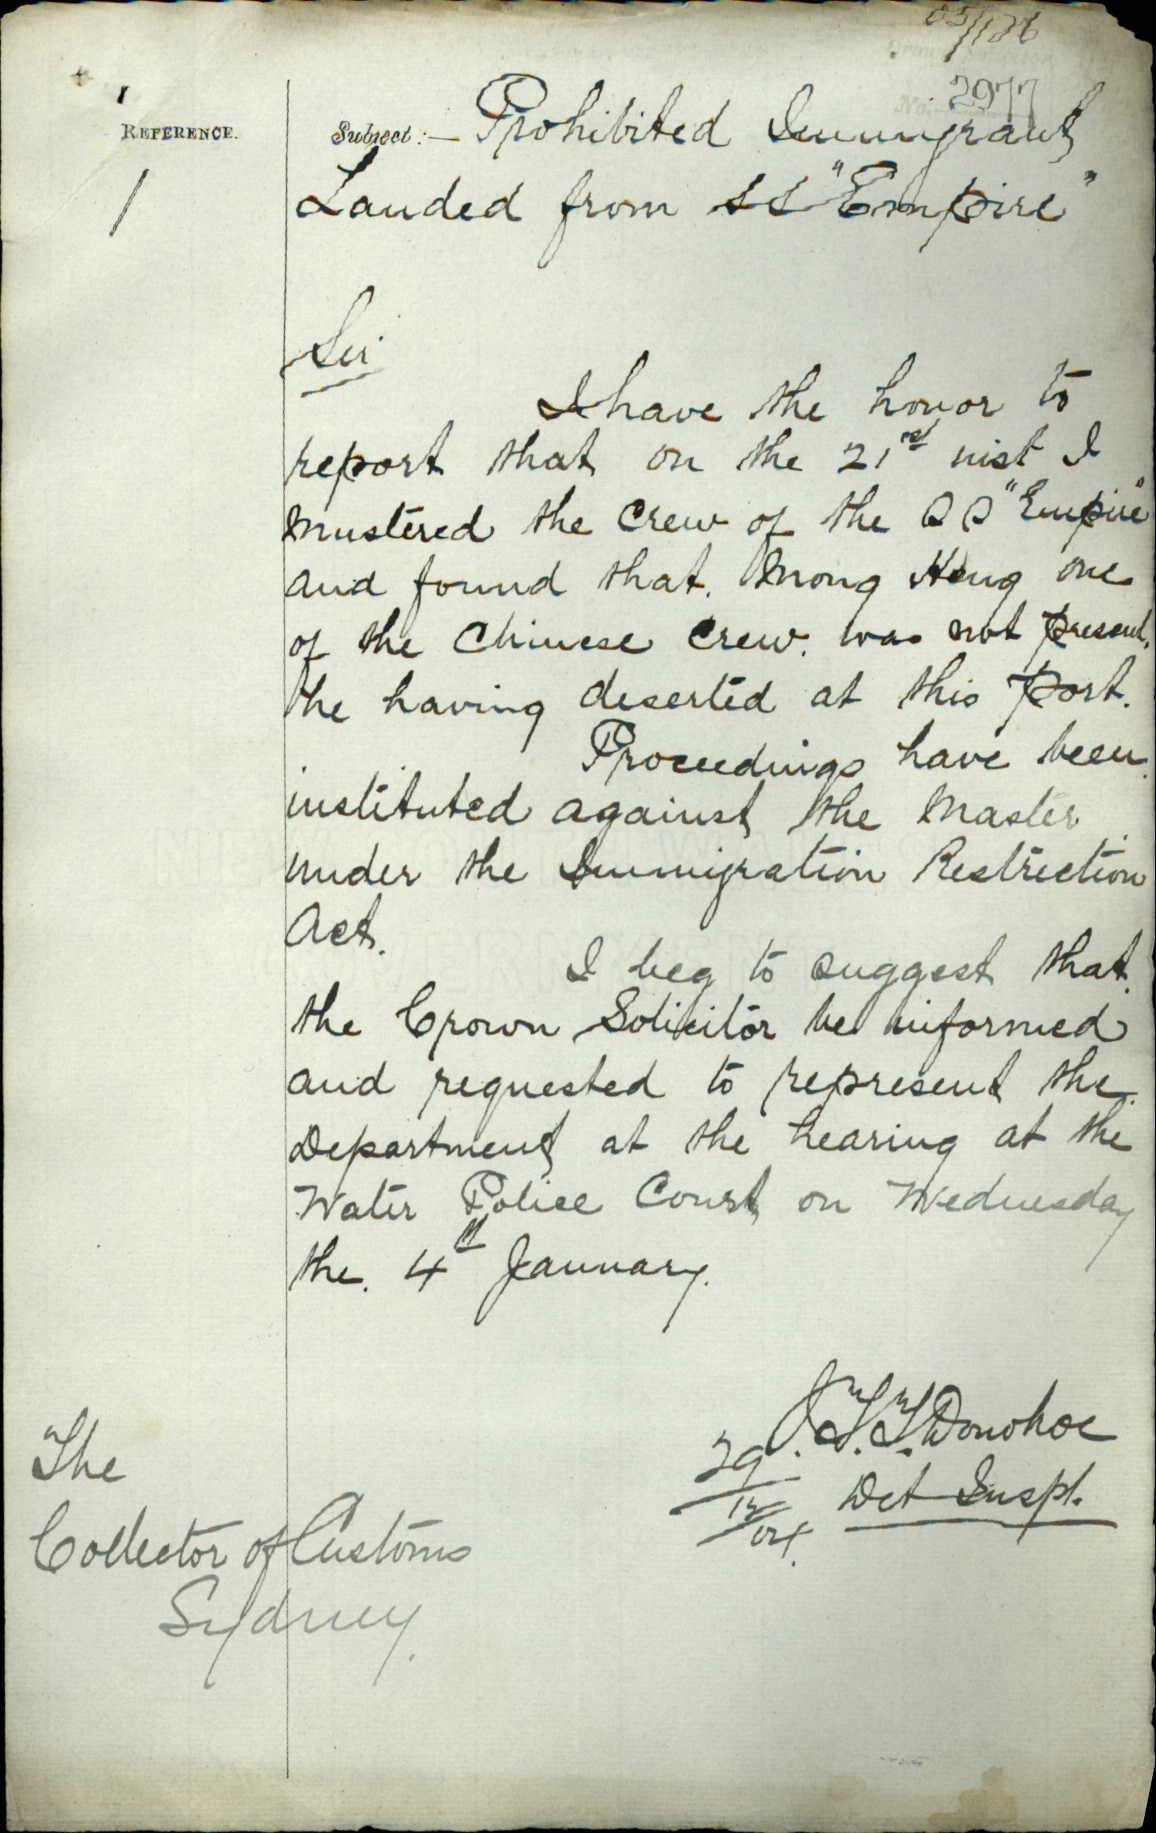 05/126
2977
REFERENCE.
1
Subject:— Prohibited Immigrant
Landed from SS "Empire"
Sir
I have the honor to
report that on the 21st inst I
mustered the crew of the SS "Empire"
and found that Mong Heng one
of the Chinese crew was not present.
he having deserted at this Port.
Proceedings have been
instituted against the Master
under the Immigration Restriction
Act.
I beg to suggest that
the Crown Solicitor be informed
and requested to represent the
Department at the hearing at the
Water Police Court on Wednesday
the 4th January.
J.T.T. Donohoe
Det Inspr.
29/12/04.
The
Collector of Customs
Sydney.